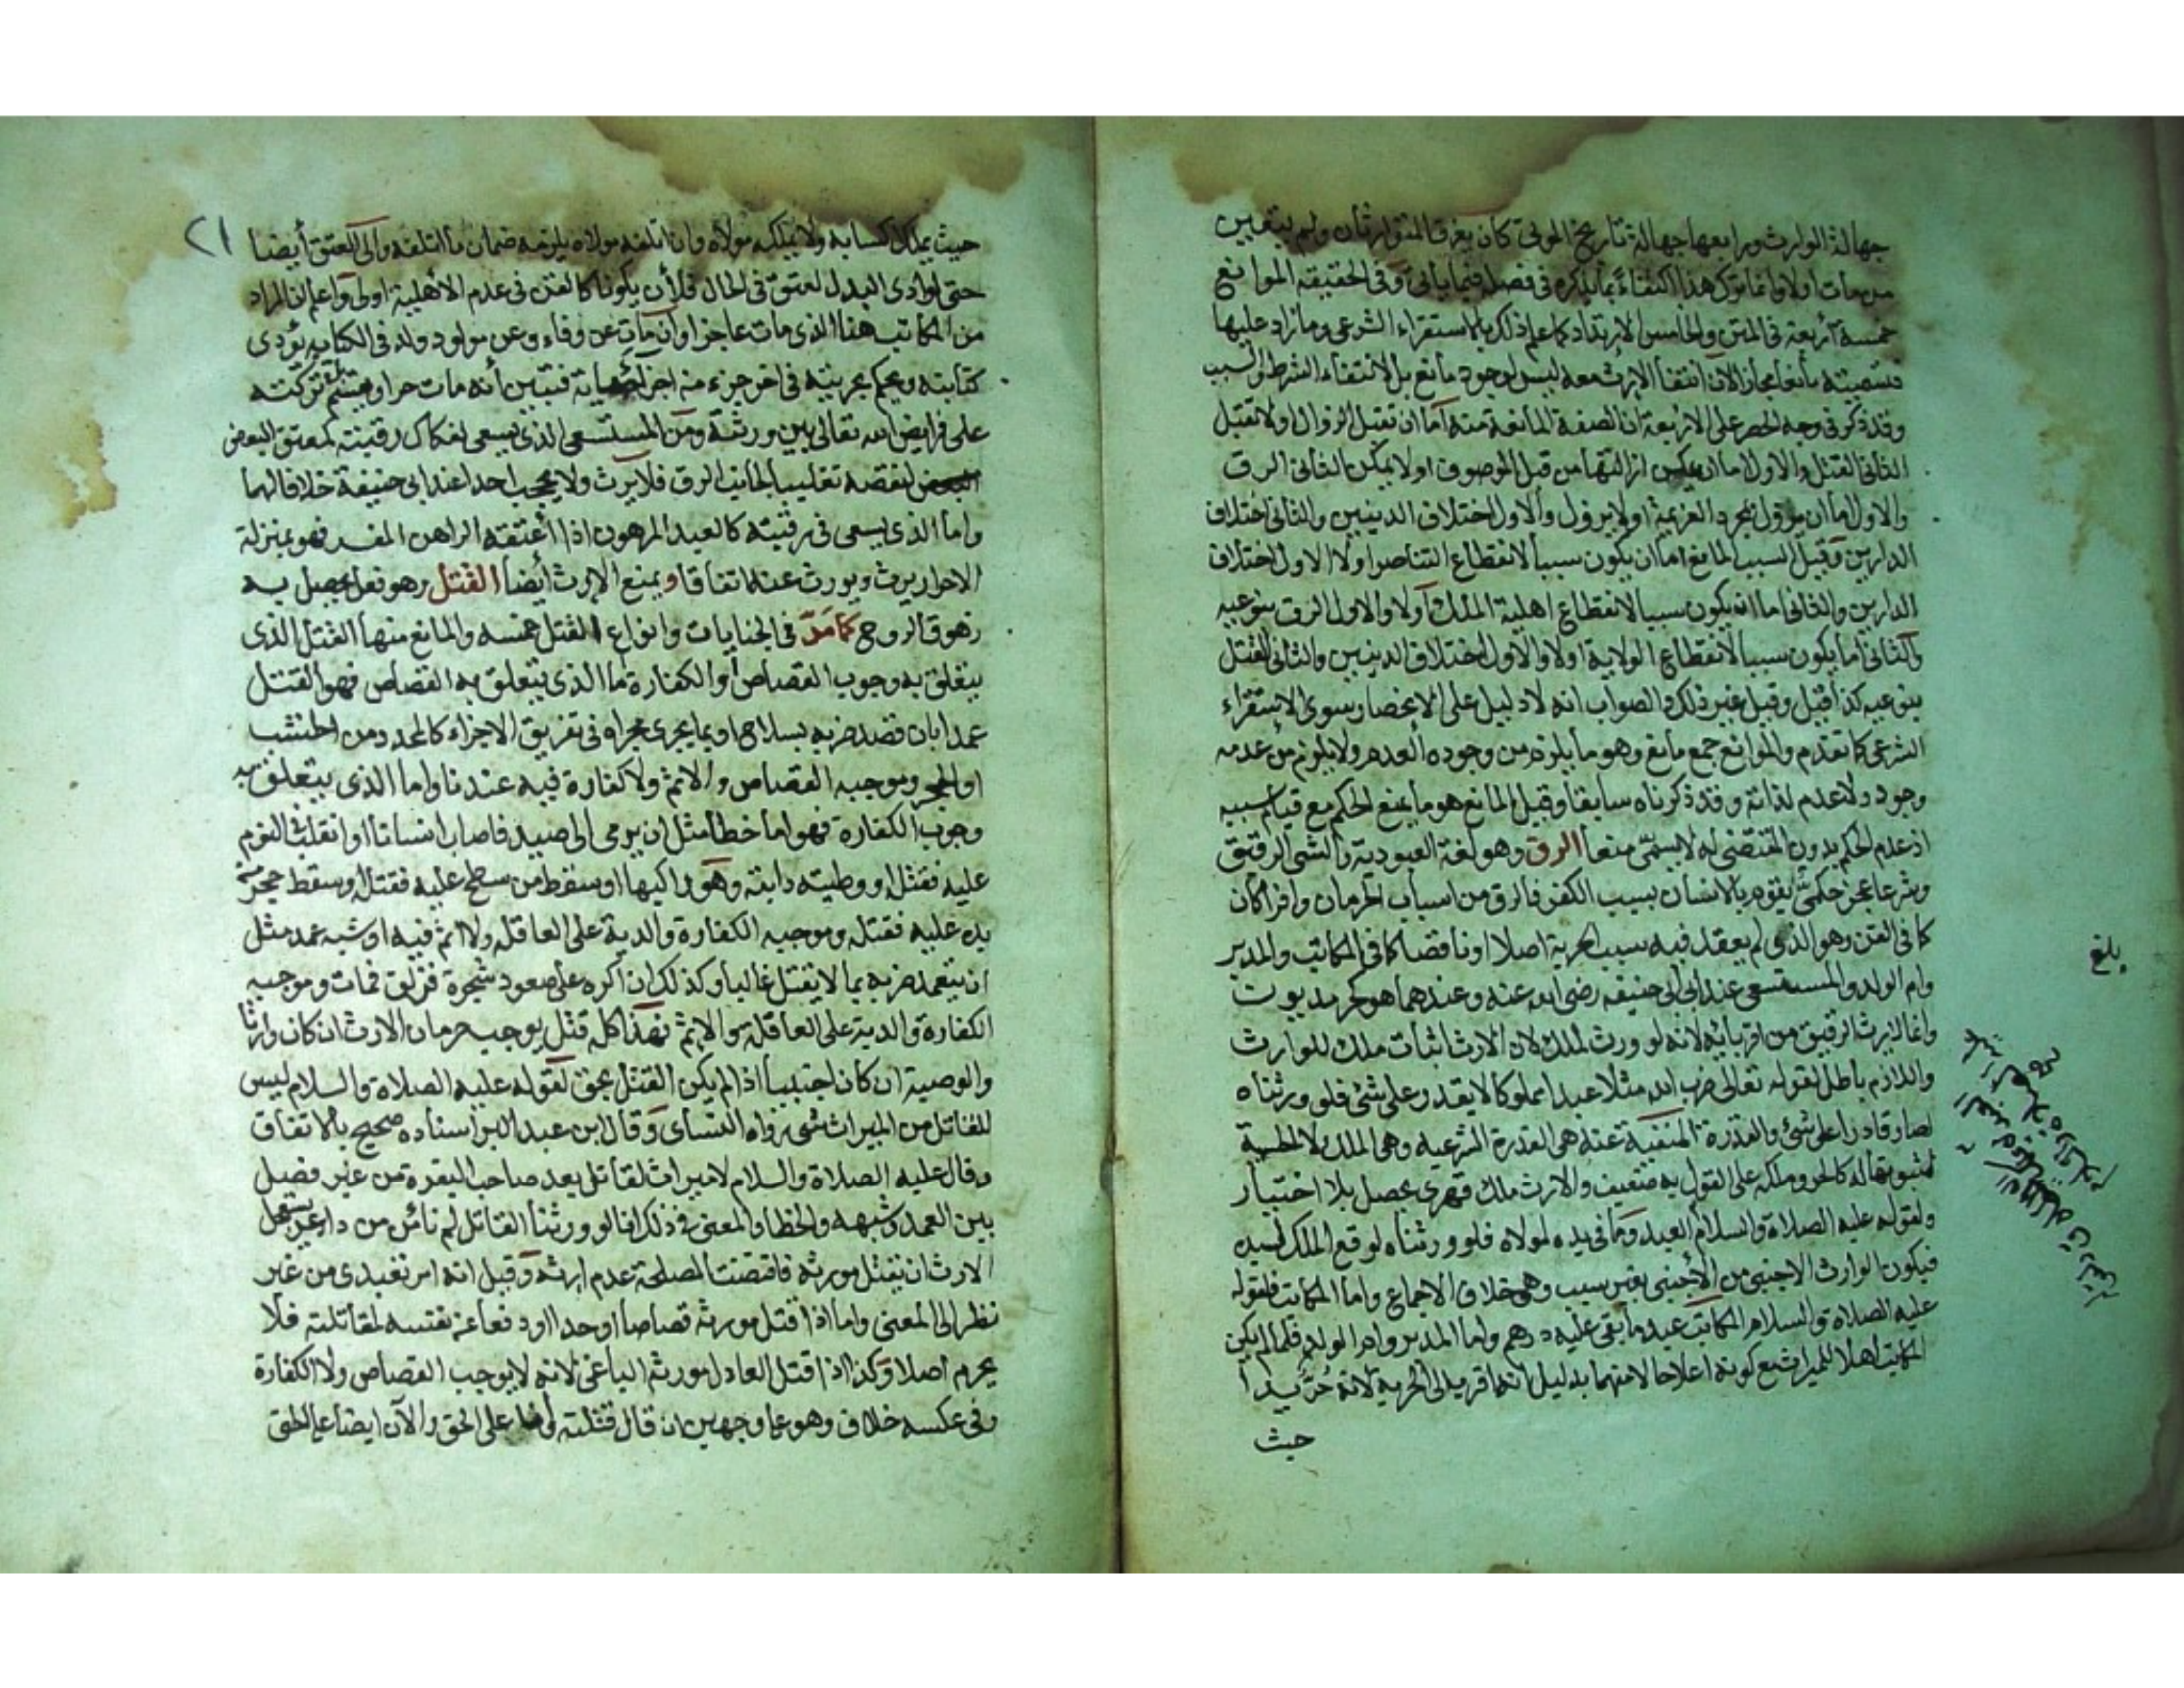 جهالة الوارث ورابعها جهالة تاريخ الموتى كأن يغرق المتوارثان ولم يتعين
من مات اولا وانما ترك هذا اكتفاءً بما يذكره في فصله فيما يأتي وفي الحقيقة الموانع
خمسة أربعة في المتن والخامس الارتداد كما علم ذلك بالاستقراء الشرعي وما زاد عليها
فتسميته مانعا مجاز لان انتفأ الإرث معه ليس لوجود مانع بل لانتفاء الشرط والسبب
وقد ذكر في وجه الحصر على الاربعة ان الصفة المانعة منه أما ان تقبل الزوال اولا تقبل
الثاني القتل والاول اما ان يمكن ازالتها من قبل الموصوف اولا يمكن الثاني الرق
والاول أما أن يزول بمجرد العزيمة اولا يزول والأول اختلاف الدينين والثاني اختلاف
الدارين وقيل السبب المانع اما ان يكون سببا لانقطاع التناصر اولا الاول اختلاف
الدارين والثاني اما انه يكون سببا لانقطاع اهلية الملك أولا والاول الرق بنوعيه
والثاني أما يكون سببا لانقطاع الولاية اولا والاول اختلاف الدينين والثاني القتل
بنوعيه كذا قيل وقيل غير ذلك والصواب انه لا دليل على الانحصار سوى الاستقراء
الشرعي كما تقدم والموانع جمع مانع وهو ما يلزم من وجوده العدم ولا يلزم من عدمه
وجود ولا عدم لذاته وقد ذكرناه سابقا وقيل المانع هو ما يمنع الحكم مع قيام سببه
اذ عدم الحكم بدون المقتضي له لا يسمى منعا الرق وهو لغة العبودية والشئ الرقيق
وشرعا عجز حكمي يقوم بالانسان بسبب الكفر فالرق من اسباب الحرمان وافرا كان
كما في القن وهو الذي لم يعقد فيه سبب الحرية اصلا او ناقصا كما في المكاتب والمدبر
وام الولد والمستسعى عند ابي حنيفه رضي الله عنه وعندهما هو كحر مديون
وانما لم يرث الرقيق من اقربائه لانه لو ورث لملك لان الارث اثبات ملك للوارث
واللازم باطل لقوله تعالى ضرب الله مثلا عبدا مملوكا لا يقدر على شئ فلو ورثناه
لصار قادرا على شئ والقدرة المنفية عنه هي القدرة الشرعيه وهي الملك لا الحسية
لثبوتها له كالحر وملكه على القول به ضعيف والارث ملك قهري يحصل بلا اختيار
ولقوله عليه الصلاة والسلام العبد وما في يده لمولاه فلو ورثناه لوقع الملك لسيده
فيكون الوارث الاجنبي من الأجنبي بغير سبب وهو خلاف الاجماع واما المكاتب فلقوله
عليه الصلاة والسلام المكاتب عبد ما بقي عليه درهم واما المدبر وام الولد فلما لم يكن
المكاتب اهلا للميراث مع كونه اعلا حالا منهما بدليل انه اقرب الى الحرية لانه حرٌّ يدا
حيث
بلغ
٢١
حيث يملك اكسابه ولا يملكه مولاه وان اتلفه مولاه يلزمه ضمان ما اتلفه والى العتق أيضا
حتى لو ادى البدل لعتق في الحال فلأن يكونا كالقن في عدم الأهلية اولى واعلم ان المراد
من المكاتب هنا الذي مات عاجزا وان مات عن وفاء وعن مولود ولد في الكتابة يؤدى
كتابته ويحكم بحريته في اخر جزء من اجزاء حياته فتبين أنه مات حرا ويقسم تركته
على فرايض الله تعالى بين ورثته ومن المستسعى الذي يسعى لفكاك رقبته كمعتق البعض
لنقصه تغليبا لجانب الرق فلا يرث ولا يحجب احدا عند ابي حنيفة خلافا لهما
واما الذي يسعى في رقبته كالعبد المرهون اذا اعتقه الراهن المفسر فهو بمنزلة
الاحرار يرث ويورث عنه اتفاقا ويمنع الإرث أيضا القتل وهو فعل يحصل به
زهوق الروح كما مَرَّ في الجنايات وانواع القتل خمسه والمانع منها القتل الذي
يتعلق به وجوب القصاص أو الكفارة ما الذي يتعلق به القصاص فهو القتل
عمدا بان قصد ضربه بسلاح او بما يجرى مجراه في تفريق الاجزاء كالمحدد من الخشب
او الحجر وموجبه القصاص والاثم ولا كفارة فيه عندنا واما الذي يتعلق به
وجوب الكفارة فهو اما خطأ مثل ان يرمى الى صيد فاصاب انسانا أو انقلب في النوم
عليه فقتله او وطيته دابته وهو راكبها او سقط من سطح عليه فقتله او سقط حجر من
يده عليه فقتله وموجبه الكفارة والدية على العاقله ولا اثم فيه او شبه عمد مثل
ان يتعمد ضربه بما لا يقتل غالبا وكذلك ان اكره على صعود شجرة فزلق فمات وموجبه
الكفارة والدية على العاقلة والاثم فهذا كله قتل يوجب حرمان الارث ان كان وارثا
والوصية ان كان اجنبيا اذا لم يكن القتل بحق لقوله عليه الصلاة والسلام ليس
للقاتل من الميراث شئ رواه النسائ وقال ابن عبد البر اسناده صحيح بالاتفاق
وقال عليه الصلاة والسلام لا ميراث لقاتل بعد صاحب البقرة من غير فصل
بين العمد وشبهه والخطا والمعنى في ذلك انا لو ورثنا القاتل لم نأمن من داعر يستعجل
الارث ان يقتل مورثه فاقتضت المصلحة عدم ارثه وقيل انه امر تعبدي من غير
نظر الى المعنى واما اذا قتل مورثه قصاصا او حدا او دفعا عن نفسه لمقاتلته فلا
يحرم اصلا وكذا اذا قتل العادل مورثه الباغي لانه لا يوجب القصاص ولا الكفارة
وفي عكسه خلاف وهو على وجهين ان قال قتلته وأنا على الحق والآن ايضا على الحق